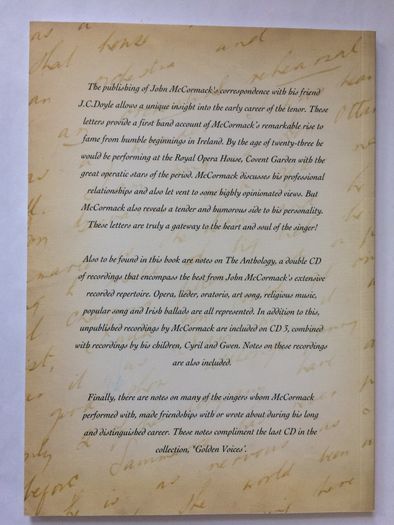 The publishing of John McCormack's correspondence with his friend
J.C.Doyle allows a unique insight into the early career of the tenor. These
letters provide a first hand account of McCormack's remarkable rise to
fame from humble beginnings in Ireland. By the age of twenty-three he
would be performing at the Royal Opera House, Covent Garden with the
great operatic stars of the period. McCormack discusses his professional
relationships and also let vent to some highly opinionated views. But
McCormack also reveals a tender and humorous side to his personality.
These letters are truly a gateway to the heart and soul of the singer!
Also to be found in this book are notes on The Anthology, a double CD
of recordings that encompass the best from John McCormack's extensive
recorded repertoire. Opera, lieder, oratorio, art song, religious music,
popular song and Irish ballads are all represented. In addition to this,
unpublished recordings by McCormack are included on CD 3, combined
with recordings by his children, Cyril and Gwen. Notes on these recordings
are also included.
Finally, there are notes on many of the singers whom McCormack
performed with, made friendships with or wrote about during his long
and distinguished career. These notes compliment the last CD in the
collection, 'Golden Voices'.